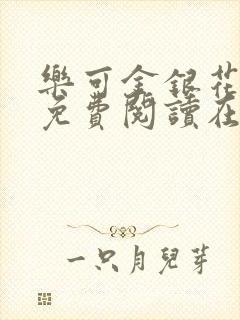 樂可金銀花
免費閱讀在
一只月兒芽